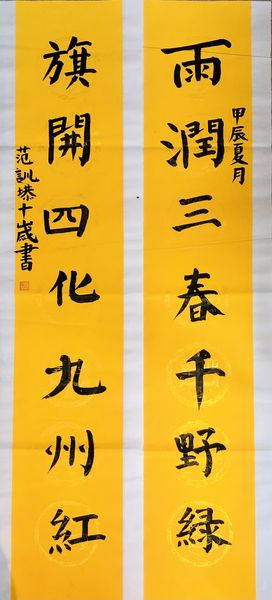 甲辰夏月
雨潤三春千野緑
旗開四化九州紅
范訓恭十歲書